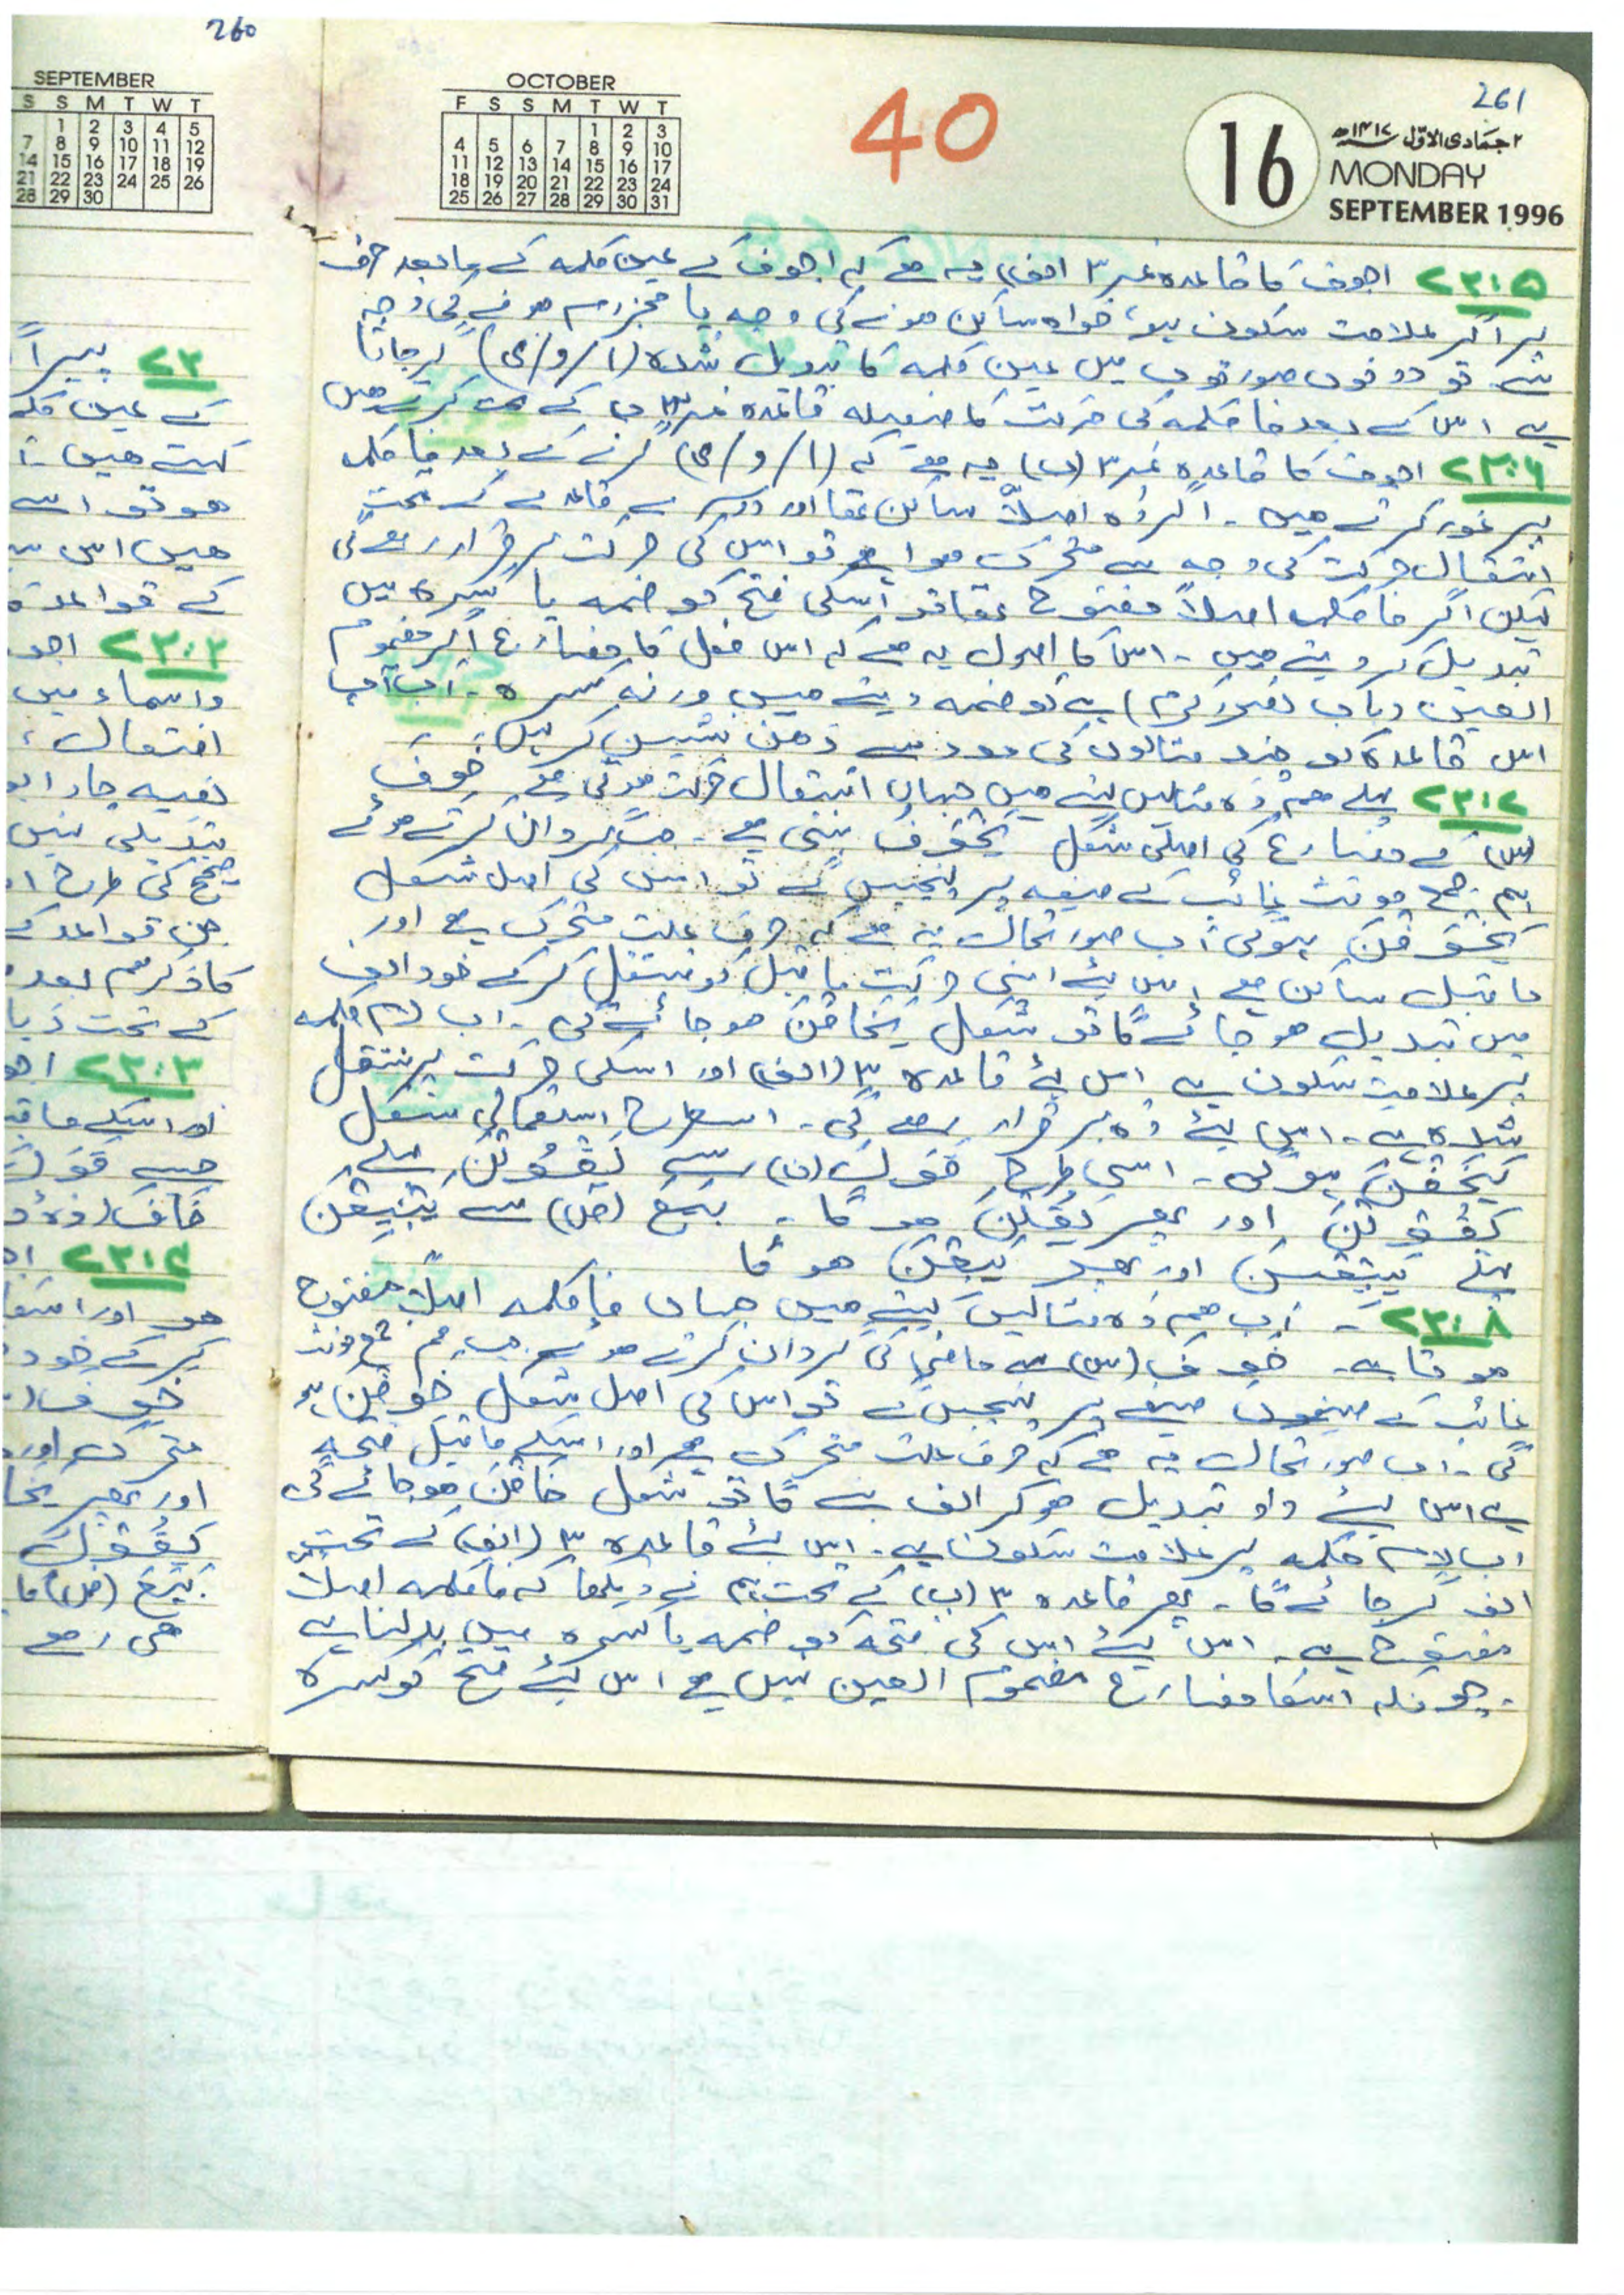 260
SEPTEMBER
S S M T W T
1 2 3 4 5
7 8 9 10 11 12
14 15 16 17 18 19
21 22 23 24 25 26
28 29 30
OCTOBER
F S S M T W T
1 2 3
4 5 6 7 8 9 10
11 12 13 14 15 16 17
18 19 20 21 22 23 24
25 26 27 28 29 30 31
40
261
16
۲ جمادی الاوّل ۱۴۱۷ھ
MONDAY
SEPTEMBER 1996
۷۳:۵ اجوف کا قاعدہ نمبر ۳ (الف) یہ ہے کہ اجوف کے عین کلمہ کے مابعد حرف
پر اگر علامت سکون ہو، خواہ ساکن ہونے کی وجہ یا مجزوم ہونے کی وجہ
سے تو دونوں صورتوں میں عین کلمہ کا تبدیل شدہ (ا/و/ی) گر جاتا
ہے اس کے بعد فا کلمہ کی حرکت کا فیصلہ قاعدہ نمبر ۳ ب کے تحت کرتے ہیں
۷۳:۶ اجوف کا قاعدہ نمبر ۳ (ب) یہ ہے کہ (ا/و/ی) گرنے کے بعد فا کلمہ
پر غور کرتے ہیں۔ اگر وہ اصلاً ساکن تھا اور دوسرے قاعدے کے تحت
انتقال حرکت کی وجہ سے متحرک ہوا ہے تو اس کی حرکت برقرار رہے گی
لیکن اگر فا کلمہ اصلاً مفتوح تھا تو اسکی فتح کو ضمہ یا کسرہ میں
تبدیل کر دیتے ہیں۔ اس کا اصول یہ ہے کہ اس فعل کا مضارع اگر مضموم
العین (باب نصر، کرم) ہے تو ضمہ دیتے ہیں ورنہ کسرہ۔ اب آپ
اس قاعدہ کو چند مثالوں کی مدد سے ذہن نشین کر لیں۔
۷۳:۷ پہلے ہم وہ مثالیں لیتے ہیں جہاں انتقال حرکت ہوتی ہے خَوِفَ
(س) کے مضارع کی اصلی شکل یَخْوَفُ بنتی ہے۔ جب گردان کرتے ہوئے
ہم جمع مونث غائب کے صیغہ پر پہنچیں گے تو اس کی اصل شکل
یَخْوَفْنَ ہوگی اب صورتحال یہ ہے کہ حرف علت متحرک ہے اور
ما قبل ساکن ہے اس لئے اپنی حرکت ما قبل کو منتقل کر کے خود الف
میں تبدیل ہو جائے گا تو شکل یَخَافْنَ ہو جائے گی۔ اب لام کلمہ
پر علامت سکون ہے اس لئے قاعدہ ۳ (الف) اور اسکی حرکت پر منتقل
شدہ ہے۔ اس لئے وہ برقرار رہے گی۔ اسطرح استعمالی شکل
یَخَفْنَ ہوگی۔ اسی طرح قَوَلَ (ن) سے یَقْوُلْنَ پہلے
یَقُوْلْنَ اور پھر یَقُلْنَ ہوگا۔ بَیَعَ (ض) سے یَبْیِعْنَ
پہلے یَبِیْعْنَ اور پھر یَبِعْنَ ہوگا
۷۳:۸ ۔ اب ہم وہ مثالیں لیتے ہیں جہاں فا کلمہ اصلاً مفتوح
ہوتا ہے۔ خَوِفَ (س) سے ماضی کی گردان کرتے ہوئے جب ہم جمع مونث
غائب کے صیغے پر پہنچیں گے تو اس کی اصل شکل خَوِفْنَ ہو
گی۔ اب صورتحال یہ ہے کہ حرف علت متحرک ہے اور اسکے ما قبل فتحہ
ہے اس لئے واو تبدیل ہو کر الف بنے گا تو شکل خَافْنَ ہو جائے گی
اب لام کلمہ پر علامت سکون ہے۔ اس لئے قاعدہ ۳ (الف) کے تحت
الف گر جائے گا۔ پھر قاعدہ ۳ (ب) کے تحت ہم نے دیکھا کہ فا کلمہ اصلاً
مفتوح ہے۔ اس لئے اس کی فتحہ کو ضمہ یا کسرہ میں بدلنا ہے
چونکہ اسکا مضارع مضموم العین نہیں ہے اس لئے فتح کو کسرہ
کے عین کلمہ
کہتے ہیں
ہو تو اسے
ہیں اس
کے قواعد
۷۳:۲ اجو
و اسماء میں
افتعال،
تبدیلی نہیں
صحیح کی طرح
جن قواعد کے
کا ذکر ہم بعد
کے تحت
۷۳:۳ اجو
اور اسکے ما قبل
جیسے قَوَلَ
۷۳:۴
ہو اور
کر کے خود
متحرک اور
اور پھر
یَقْوُلُ
ہی رہے